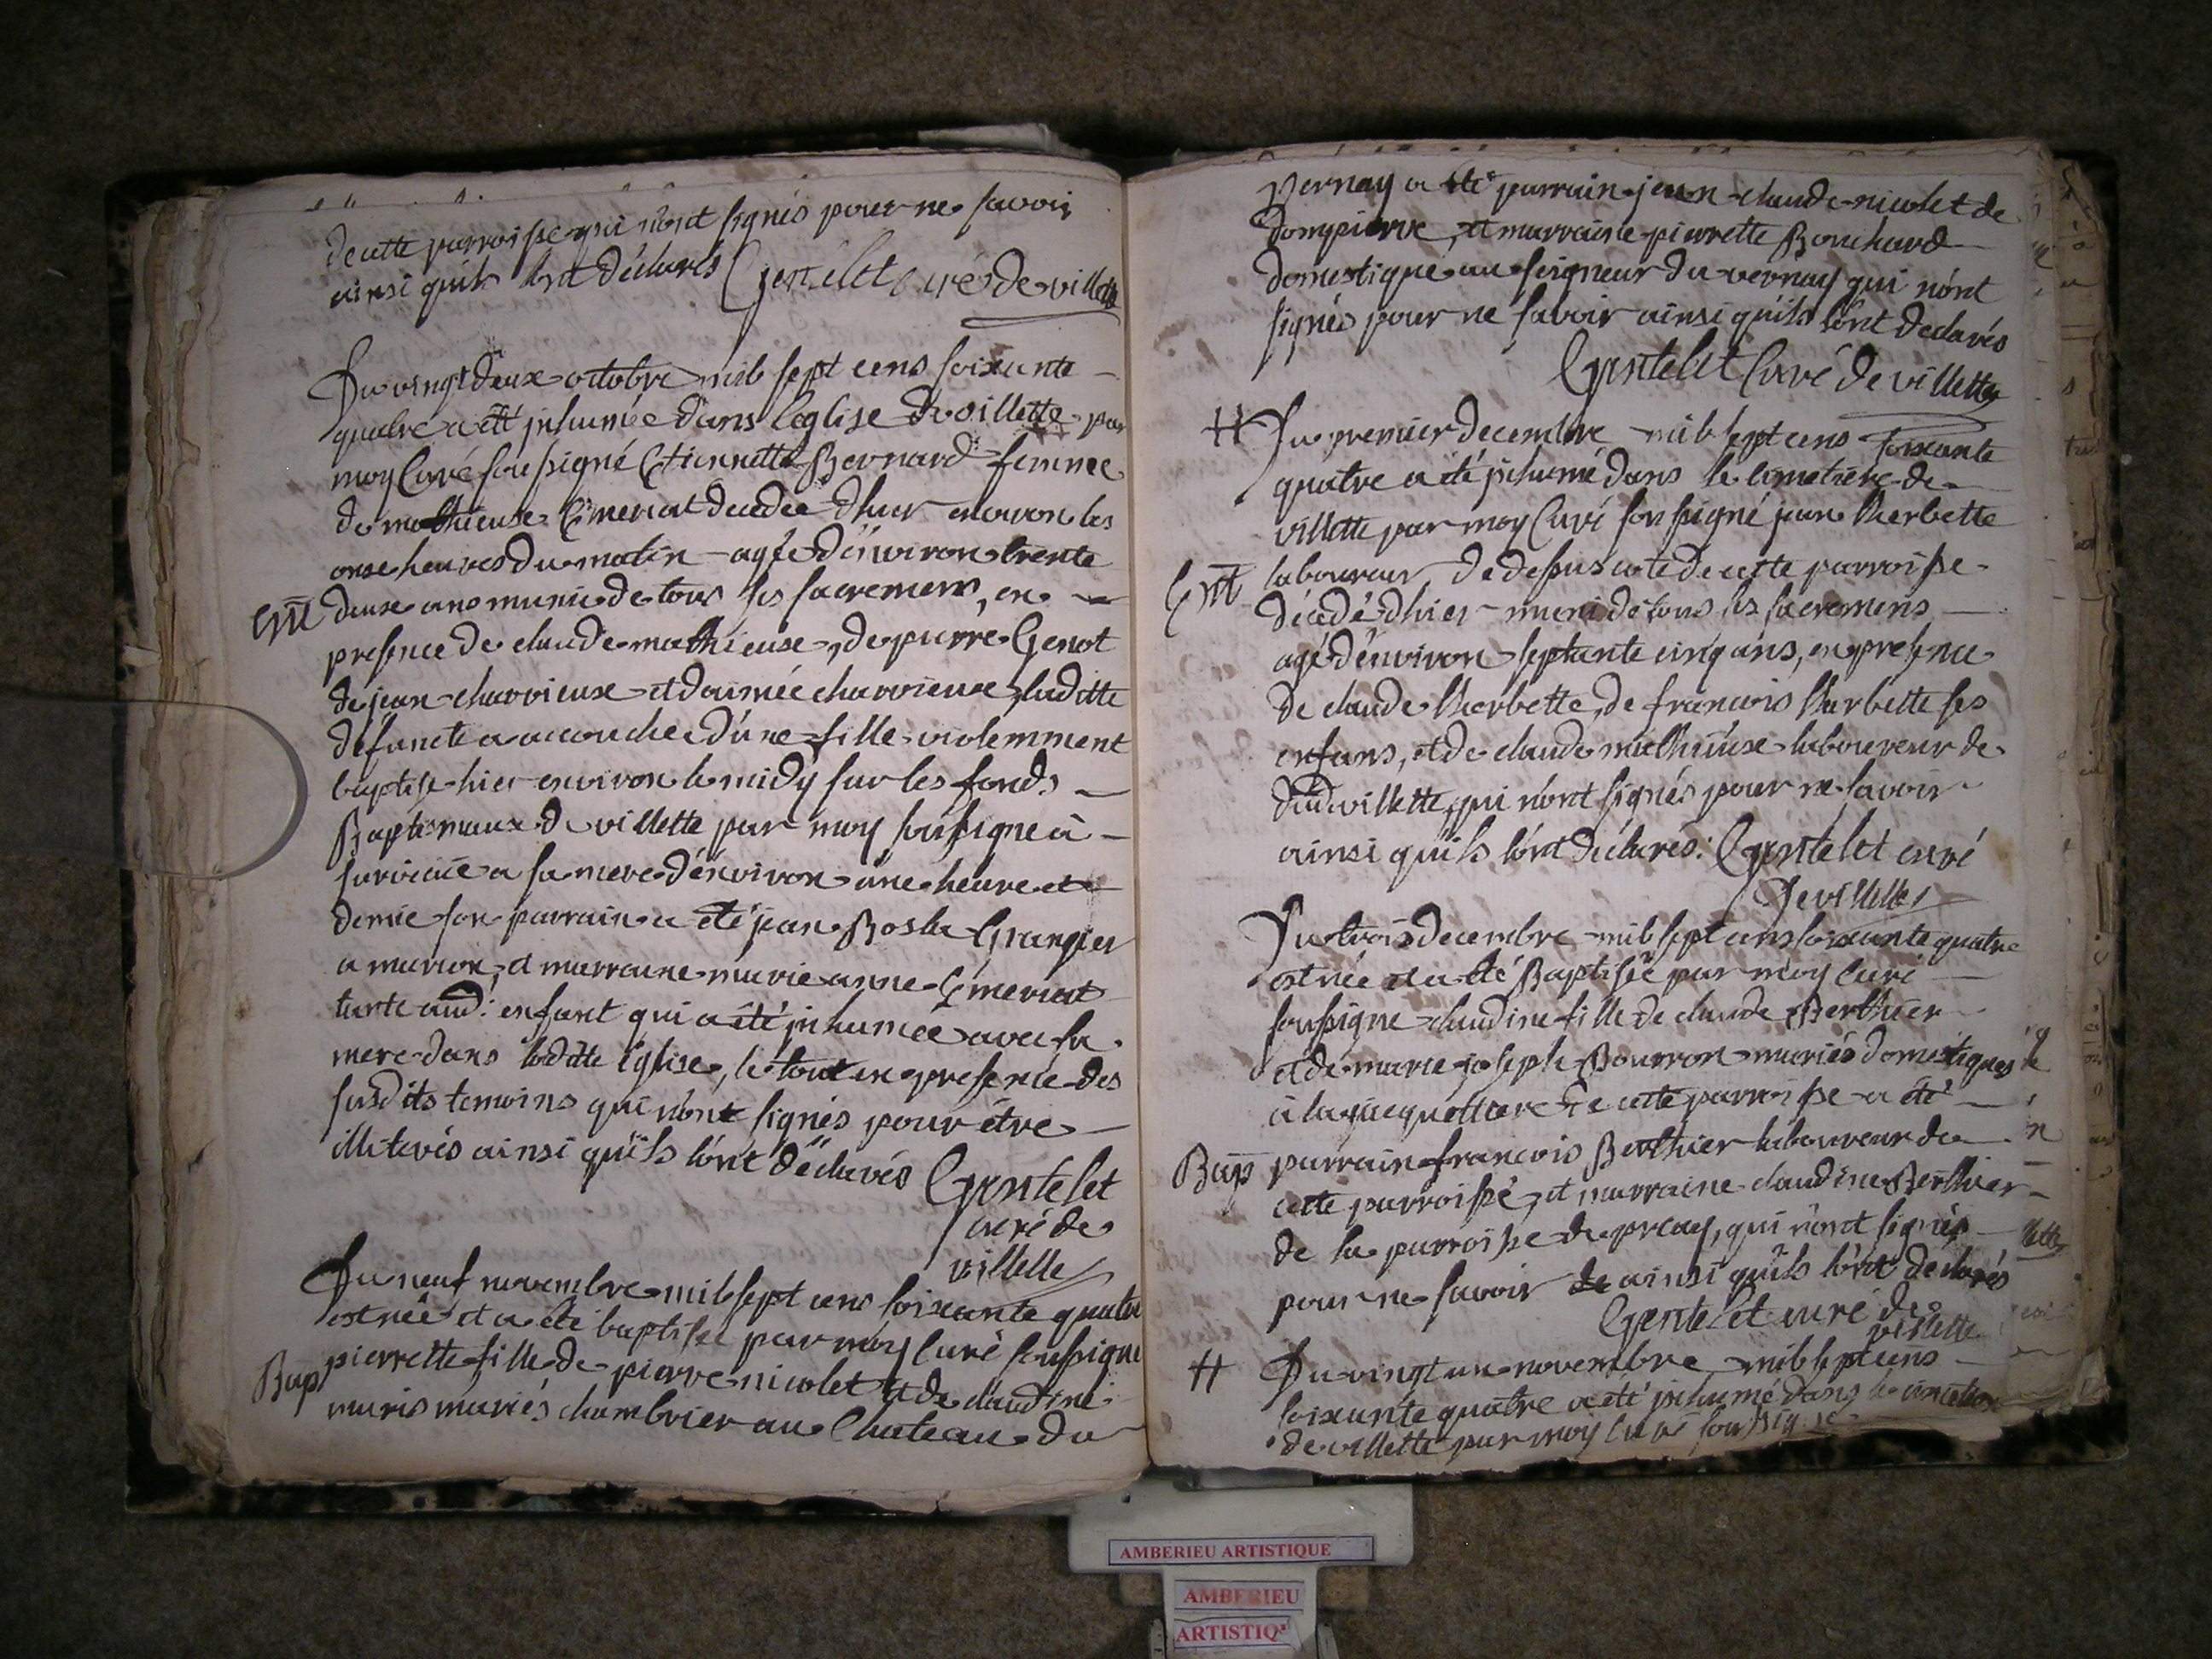 de cette parroisse qui n'ont signés pour ne savoir
ainsi quils l'ont déclarés Gentelet Curé de villette
Du vingt deux octobre mil sept cens soixante
quatre a été inhumée dans l'eglise de villette par
moy Curé soussigné Etiennette Bernard femme
de mathieuse Emeriat decedée d'hier environ les
onze heures du matin agée d'environ trente
Ent deux ans munie de tous ses sacremens, en
presence de claude mathieuse, de pierre Genot
de jean charvieuse et d'aimée charvieuse, laditte
défuncte a accouchée d'une fille violemment
baptisé hier environ le midÿ sur les fonds
Baptismaux de villette par moy soussigné a
survecue a sa mere d'environ une heure et
demie son parrain a été jean Grangier
a marion, et marraine marie anne Emeriat
tante aud: enfant qui a été inhumée avec sa
mere dans laditte Eglise, le tout en presence des
susdits temoins qui n'ont signés pour être
illiterés ainsi qu'ils l'ont déclarés Gentelet
curé de
villette
Du neuf novembre mil sept cens soixante quatre
est née et a été baptisée par moy Curé soussigné
Bap pierrette fille de pierre nicolet et de claudine
maris mariés chambrier au Chateau du
Vernay a été parrain jean claude nicolet de
Dompierre, et marraine pierrette Bouchard
domestique au seigneur du vernay qui n'ont
signés pour ne savoir ainsi qu'ils l'ont declarés
Gentelet Curé de villette
Du premier decembre mil sept cens soixante
quatre a été inhumé dans le Cimetiere de
villette par moy Curé soussigné jean Therbette
Ent laboureur de dessus cote de cette parroisse
décédé d'hier muni de tous les sacremens
agé d'environ septante cinq ans, en presence
de claude Therbette, de francois Therbette ses
enfans, et de claude mathieuse laboureur de
dud villette, qui n'ont signés pour ne savoir
ainsi qu'ils l'ont declarés: Gentelet curé
de villette
Du trois decembre mil sept cens soixante quatre
est née et a été Baptisée par moy Curé
soussigné claudine fille de claude Berthier
et de marie joseph Bourron mariés domestiques
à la jacquettiere de cette parroisse a été
Bap parrain francois Berthier laboureur de
cette parroisse, et marraine claudine Berthier
de la parroisse de priay, qui n'ont signés
pour ne savoir de ainsi qu'ils l'ont declarés
Gentelet curé de
villette
Du vingt un novembre mil sept cens
soixante quatre a été inhumé dans le cimetiere
de villette par moy Curé soussigné
AMBERIEU ARTISTIQUE
AMBERIEU
ARTISTIQ